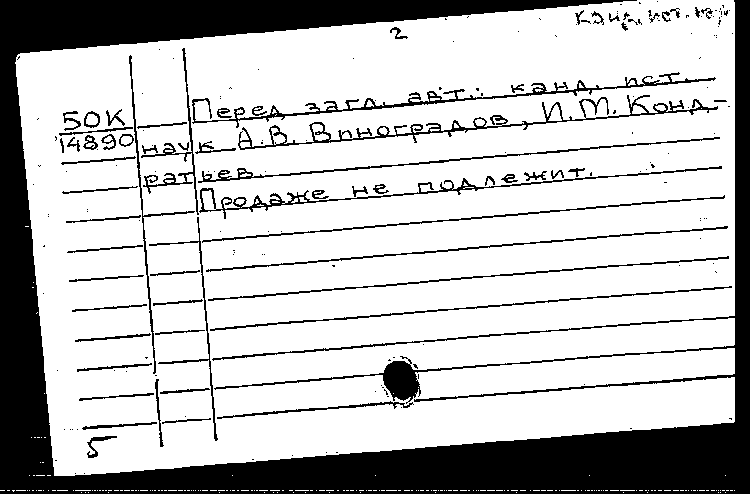 2
канд. ист. на
50К
14890
Перед загл. авт.: канд. ист.
наук А.В. Виноградов, И.М. Конд-
ратьев.
Продаже не подлежит.
5